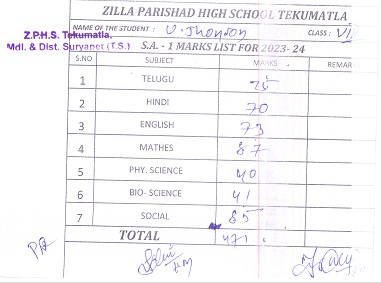 ZILLA PARISHAD HIGH SCHOOL TEKUMATLA
NAME OF THE STUDENT : U. Jhonson CLASS : VII
Z.P.H.S. Tekumatla,
Mdl. & Dist. Suryapet (T.S.) S.A. - 1 MARKS LIST FOR 2023- 24
S.NO SUBJECT MARKS REMAR
1 TELUGU 75
2 HINDI 70
3 ENGLISH 73
4 MATHES 87
5 PHY. SCIENCE 40
6 BIO- SCIENCE 41
7 SOCIAL 85
TOTAL 471
HM